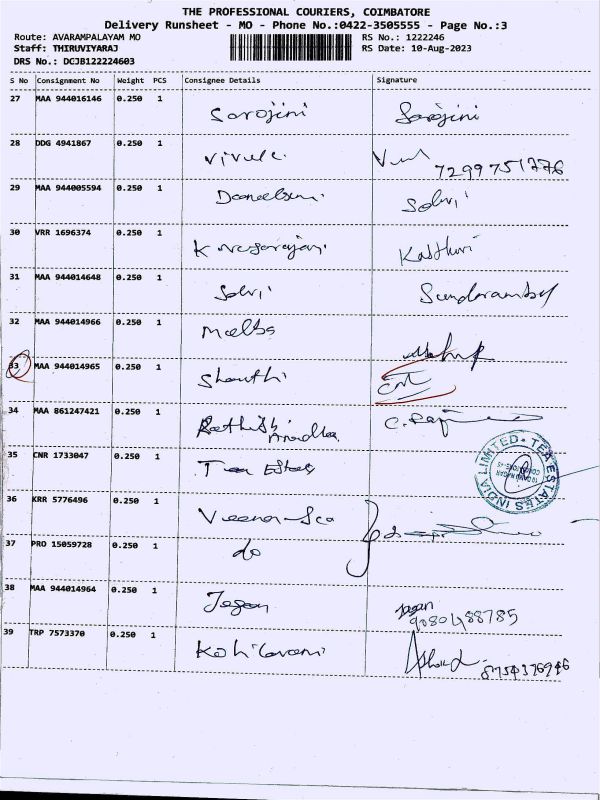 THE PROFESSIONAL COURIERS, COIMBATORE
Delivery Runsheet - MO - Phone No.:0422-3505555 - Page No.:3
Route: AVARAMPALAYAM MO RS No.: 1222246
Staff: THIRUVIYARAJ RS Date: 10-Aug-2023
DRS No.: DCJB122224603
S No Consignment No Weight PCS Consignee Details Signature
27 MAA 944016146 0.250 1 Sarojini Sarojini
28 DDG 4941867 0.250 1
7299751776
29 MAA 944005594 0.250 1 Selvi
30 VRR 1696374 0.250 1 K Nagarajan Kasthuri
31 MAA 944014648 0.250 1 Selvi
32 MAA 944014966 0.250 1
33 MAA 944014965 0.250 1 Shanthi
34 MAA 861247421 0.250 1
35 CNR 1733047 0.250 1 Tea Estates
TEA ESTATES INDIA LIMITED
36 KRR 5776496 0.250 1 Veena
37 PRO 15059728 0.250 1 do
38 MAA 944014964 0.250 1 Jagan Jagan
9080488785
39 TRP 7573370 0.250 1 Kohilavani